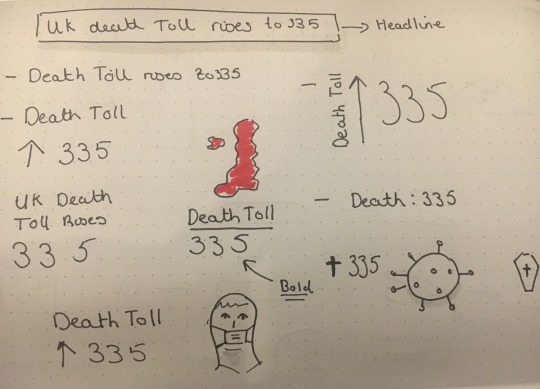 UK death Toll rises to 335 → Headline
- Death Toll rises to 335
- Death Toll
↑ 335
UK Death
Toll Rises
335
Death Toll
335
Bold
Death Toll
↑ 335
- Death Toll ↑ 335
- Death: 335
✝ 335